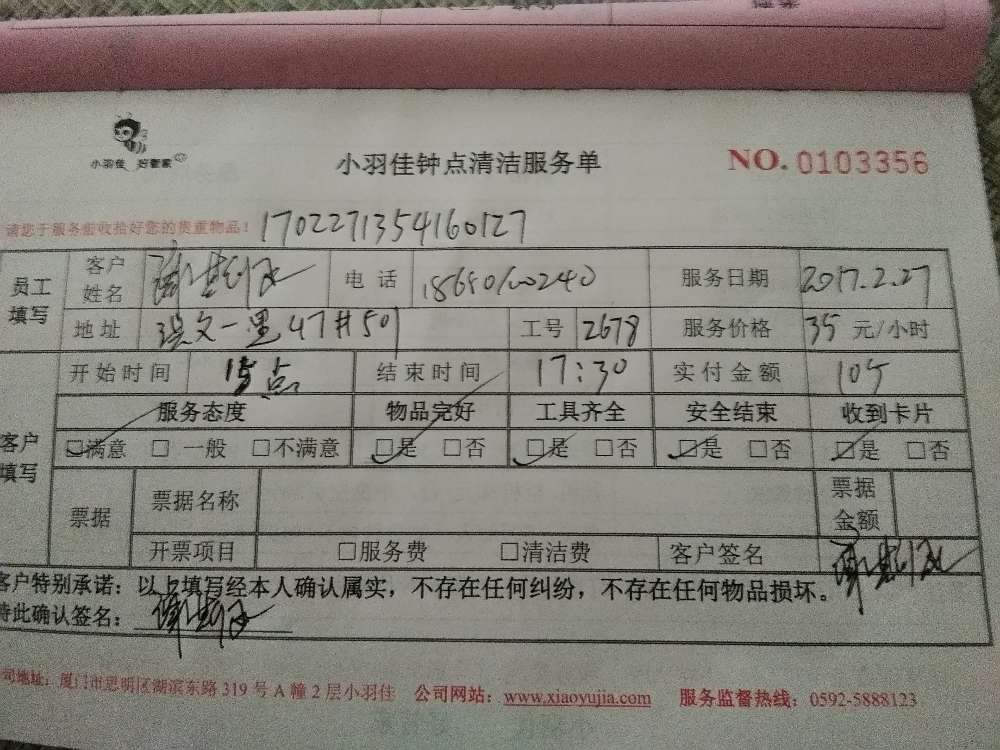 小羽佳 好管家
小羽佳钟点清洁服务单
NO. 0103356
请您于服务前收拾好您的贵重物品! 1702271354160127
员工填写 客户姓名 电话 18650160240 服务日期 2017.2.27
地址 一里47#501 工号 2678 服务价格 35 元/小时
开始时间 点 结束时间 17:30 实付金额 105
客户填写 服务态度 物品完好 工具齐全 安全结束 收到卡片
☑满意 □ 一般 □不满意 ☑是 □否 ☑是 □否 ☑是 □否 ☑是 □否
票据 票据名称 票据金额
开票项目 □服务费 □清洁费 客户签名
客户特别承诺:以上填写经本人确认属实,不存在任何纠纷,不存在任何物品损坏。
特此确认签名:
司地址:厦门市思明区湖滨东路 319 号 A 幢 2 层小羽佳 公司网站:www.xiaoyujia.com 服务监督热线:0592-5888123